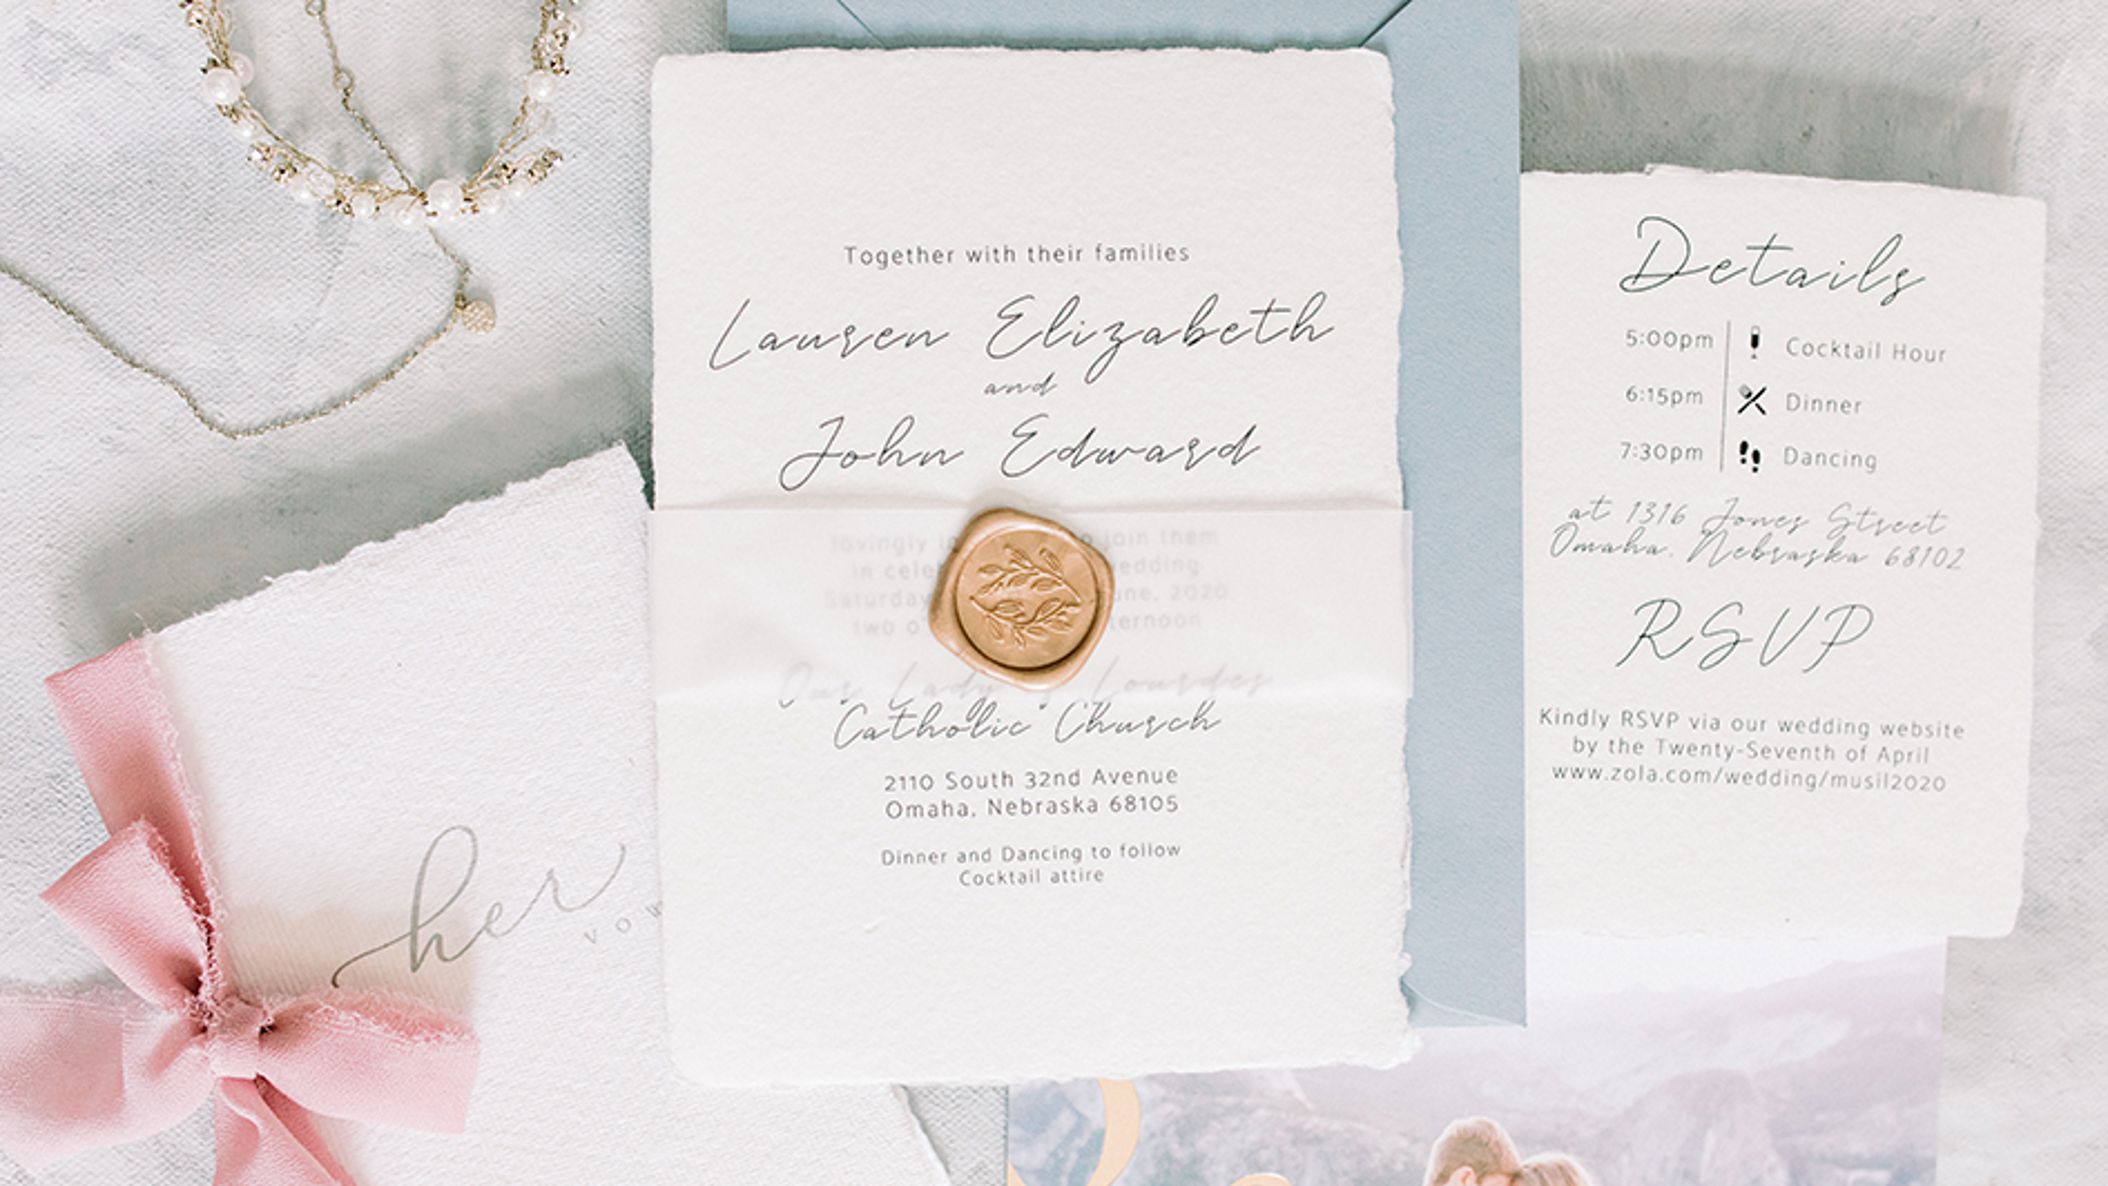 Together with their families
Lauren Elizabeth
and
John Edward
lovingly to join them
in wedding
Saturday June, 2020
two
Our Lady of Lourdes
Catholic Church
2110 South 32nd Avenue
Omaha, Nebraska 68105
Dinner and Dancing to follow
Cocktail attire
Details
5:00pm Cocktail Hour
6:15pm Dinner
7:30pm Dancing
at 1316 Jones Street
Omaha, Nebraska 68102
RSVP
Kindly RSVP via our wedding website
by the Twenty-Seventh of April
www.zola.com/wedding/musil2020
her